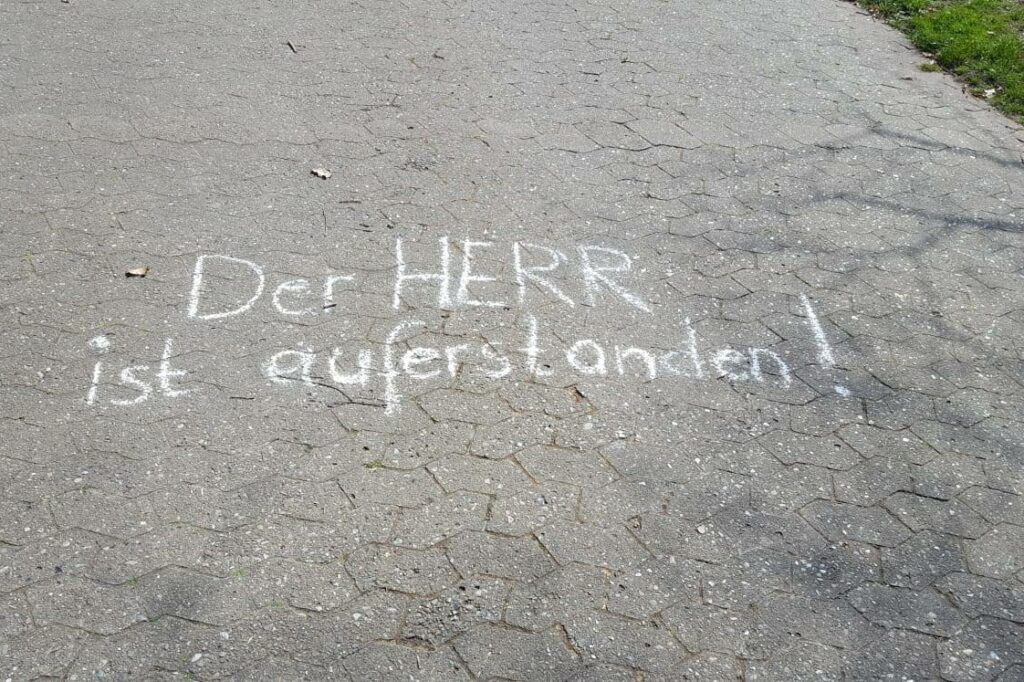 Der HERR
ist auferstanden!